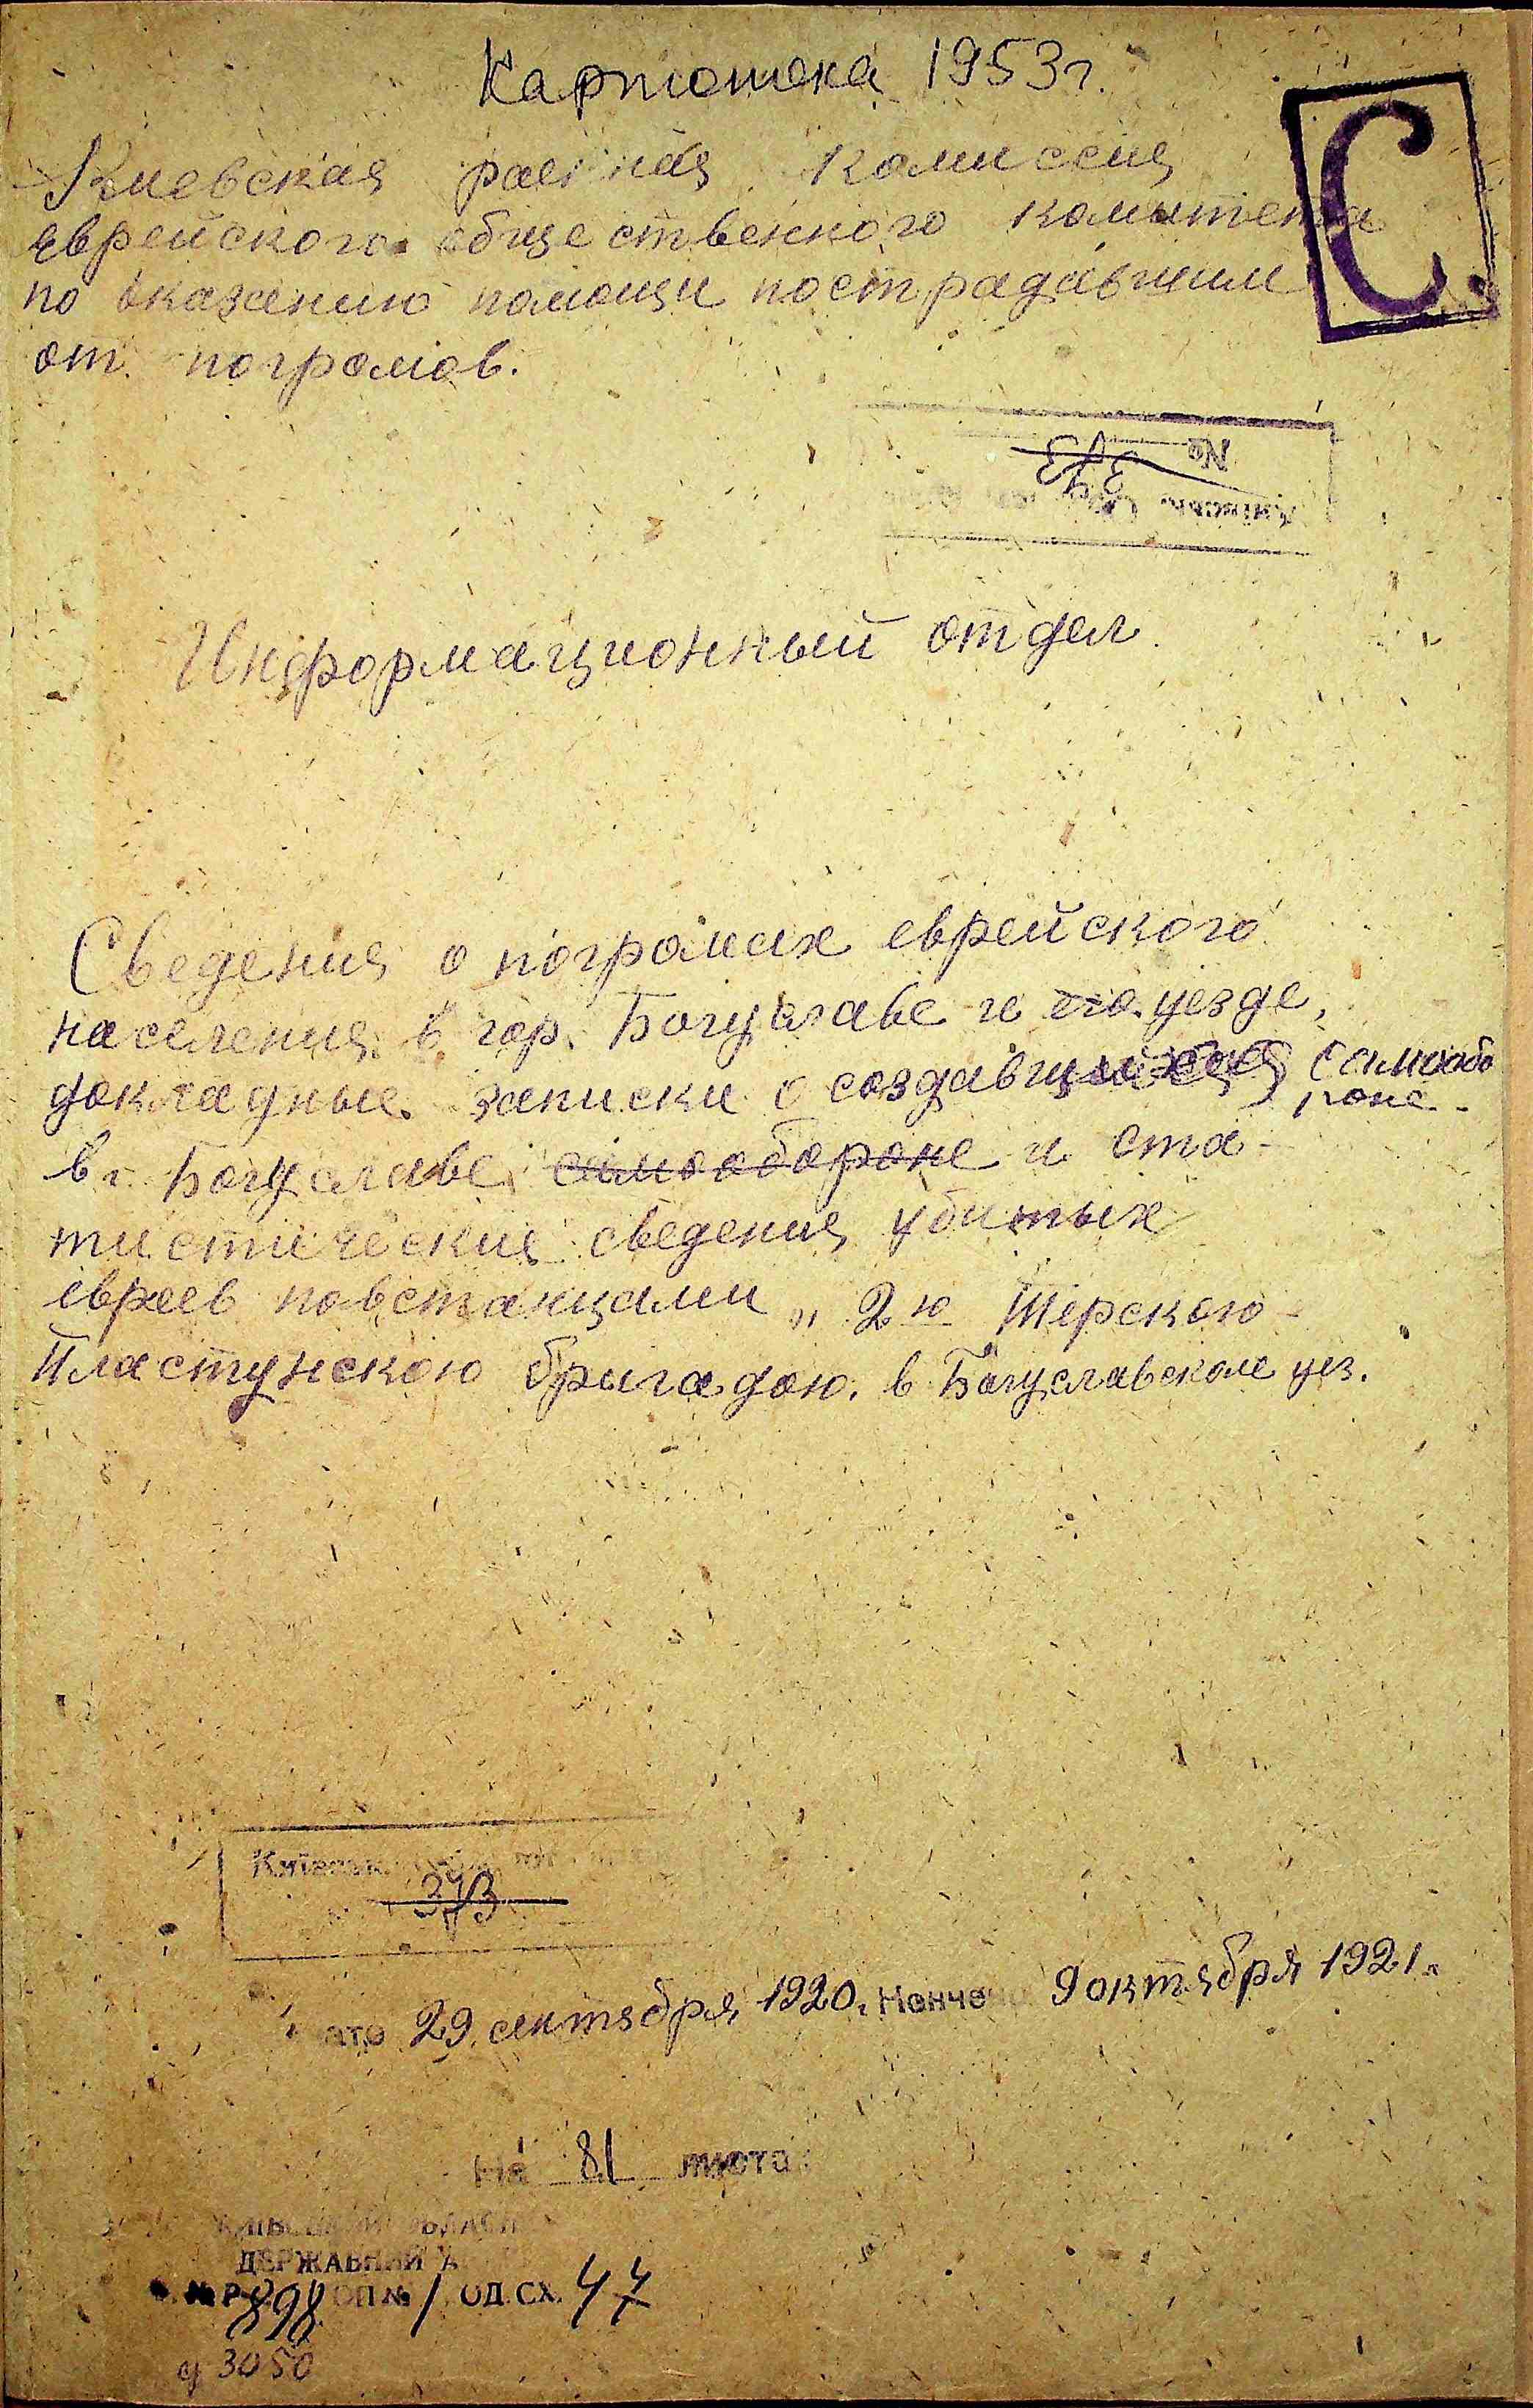 Картотека 1953 г.
С
Киевская районная комиссия
еврейского общественного комитета
по оказанию помощи пострадавшим
от погромов.
№ 373
Информационный отдел.
Сведения о погромах еврейского
населения в гор. Богуславе и его уезде,
докладные записки о создавшейся самообо
роне
в г. Богуславе самообороне и ста-
тистические сведения убитых
евреев повстанцами „ 2ю Терскою
Пластунскою бригадою. в Богуславском уез.
373
29 сентября 1920 г. Кончено 9 октября 1921 г.
На 81 листах
ДЕРЖАВНИЙ
№ Р-898 ОП № 1 ОД. СХ. 47
д 3050